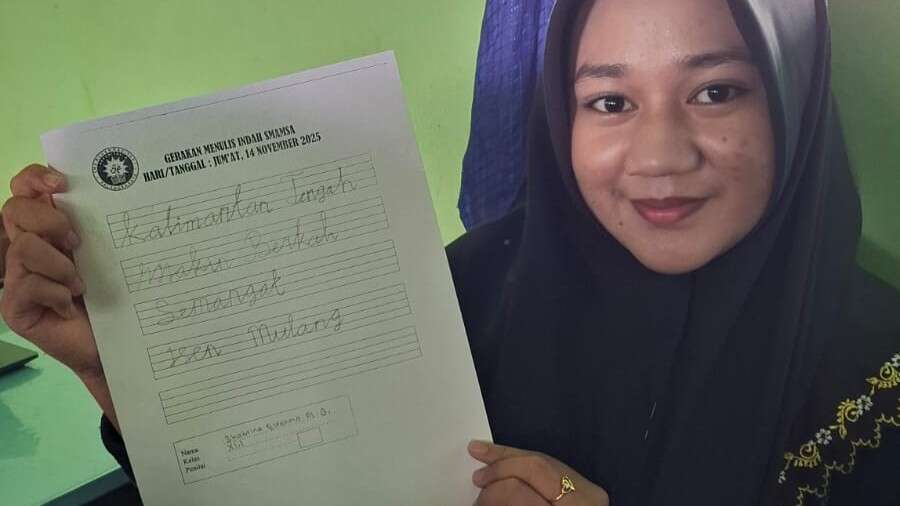 GERAKAN MENULIS INDAH SMAMSA
HARI/TANGGAL : JUM'AT, 14 NOVEMBER 2025
Kalimantan Tengah
Makin Berkah
Semangat
Isen Mulang
Nama
Kelas
Penilai